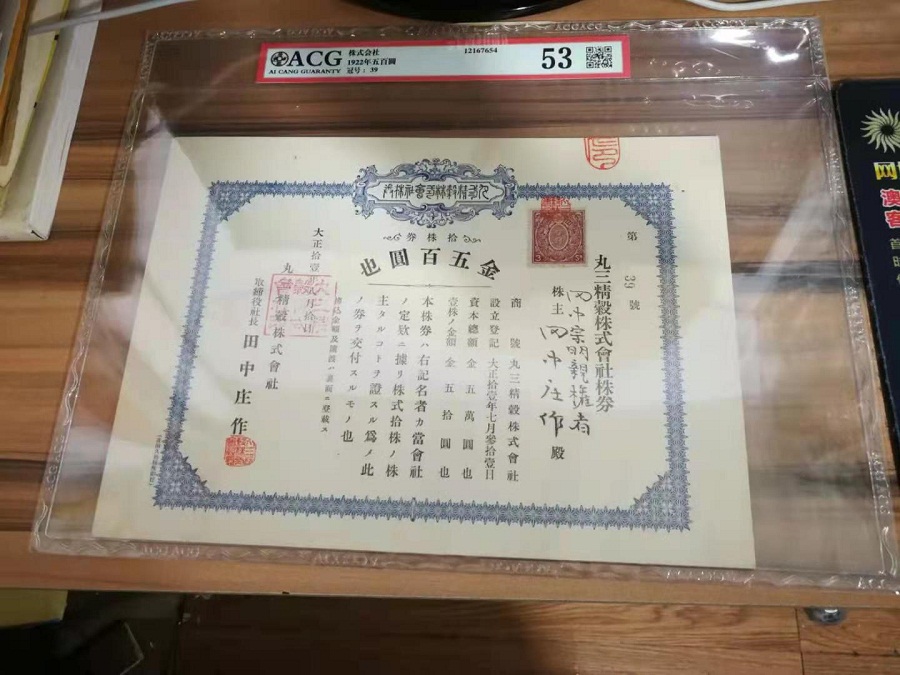 ACG
AI CANG GUARANTY
株式会社
1922年五百圓
冠号：39
12167654
53
拾株券
金五百圓也
第 39 號
丸三精穀株式會社株券
株主 田中庄作 殿
商號 丸三精穀株式會社
設立登記 大正拾壹年七月參拾壹日
資本總額 金五萬圓也
壹株ノ金額 金五拾圓也
本株券ハ右記名者カ當會社
ノ定欵ニ據リ株式拾株ノ株
主タルコトヲ證スル爲メ此
ノ券ヲ交付スルモノ也
大正拾壹年
精穀株式會社
取締役社長 田中庄作
网
澳
客